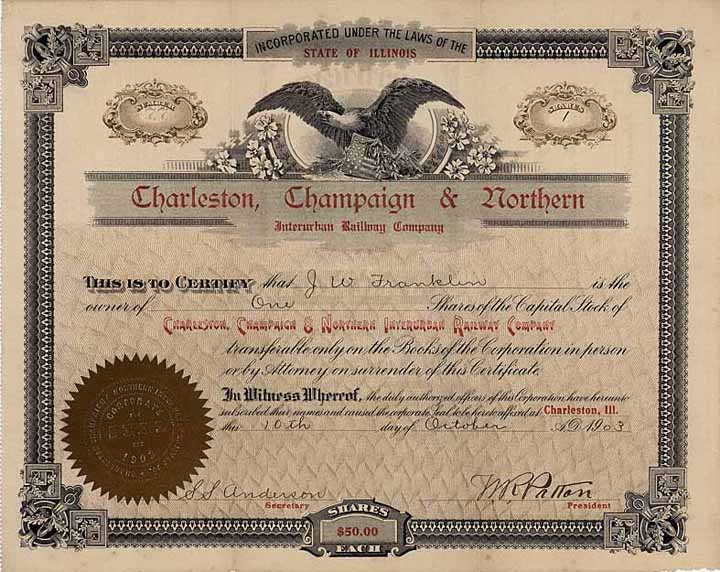 INCORPORATED UNDER THE LAWS OF THE
STATE OF ILLINOIS
NUMBER
SHARES
1
Charleston, Champaign & Northern
Interurban Railway Company
THIS IS TO CERTIFY that J W Franklin is the
owner of One Shares of the Capital Stock of
CHARLESTON, CHAMPAIGN & NORTHERN INTERURBAN RAILWAY COMPANY
transferable only on the Books of the Corporation in person
or by Attorney on surrender of this Certificate.
In Witness Whereof, the duly authorized officers of this Corporation have hereunto
subscribed their names and caused the corporate Seal to be hereto affixed at Charleston, Ill.
this 10th day of October A.D. 1903
S S Anderson
Secretary
W R Patton
President
SHARES
$50.00
EACH